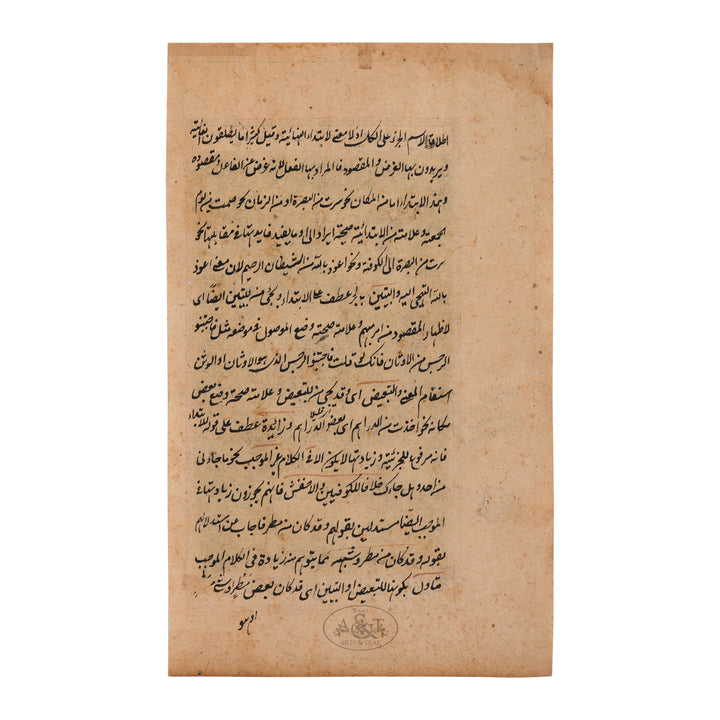 اطلاقا لاسم الجزء على الكل اذ لا معنى لابتداء النهائية وقيل كثيرا ما يطلقون الغاية
ويريدون بها الغرض والمقصود فالمراد بها الفعل لانه غرض من الفاعل ومقصوده
وهذا الابتداء اما من المكان نحو سرت من البصرة او من الزمان نحو صمت من يوم
الجمعة وعلامة من الابتدائية صحة ايراد الى او ما يفيد فايدتها في مقابلتها نحو
سرت من البصرة الى الكوفة ونحو اعوذ بالله من الشيطان الرجيم لان معنى اعوذ
بالله التجى اليه والتبيين بالجر عطف على الابتداء ويجئ من للتبيين ايضا اى
لاظهار المقصود من امر مبهم وعلامته صحة وضع الموصول فى موضعه مثل فاجتنبوا
الرجس من الاوثان فانك لو قلت فاجتنبوا الرجس الذى هو الاوثان او الوثن
استقام المعنى والتبعيض اى وقد يجئ من للتبعيض وعلامته صحة وضع بعض
مكانه نحو اخذت من الدراهم اى بعض الدراهم وزائدة عطف على قوله للابتداء
فانه مرفوع للخبرية وزيادتها لا يكون الا فى الكلام غير الموجب نحو ما جاءنى
من احد وهل جاءك خلافا للكوفيين والاخفش فانهم يجوزون زيادتها فى
الموجب ايضا مستدلين بقولهم وقد كان من مطر فاجاب عن استدلالهم
بقوله وقد كان من مطر وشبهه مما يتوهم منه زيادة فى الكلام الموجب
متاول بكونها للتبعيض او التبيين اى قد كان بعض مطر او شئ من مطر
او هو
RAJ
A&T
ARTS & TEAK